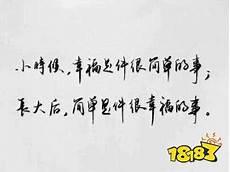 小時候,幸福是件很简单的事;
長大后,简单是件很幸福的事。
18183